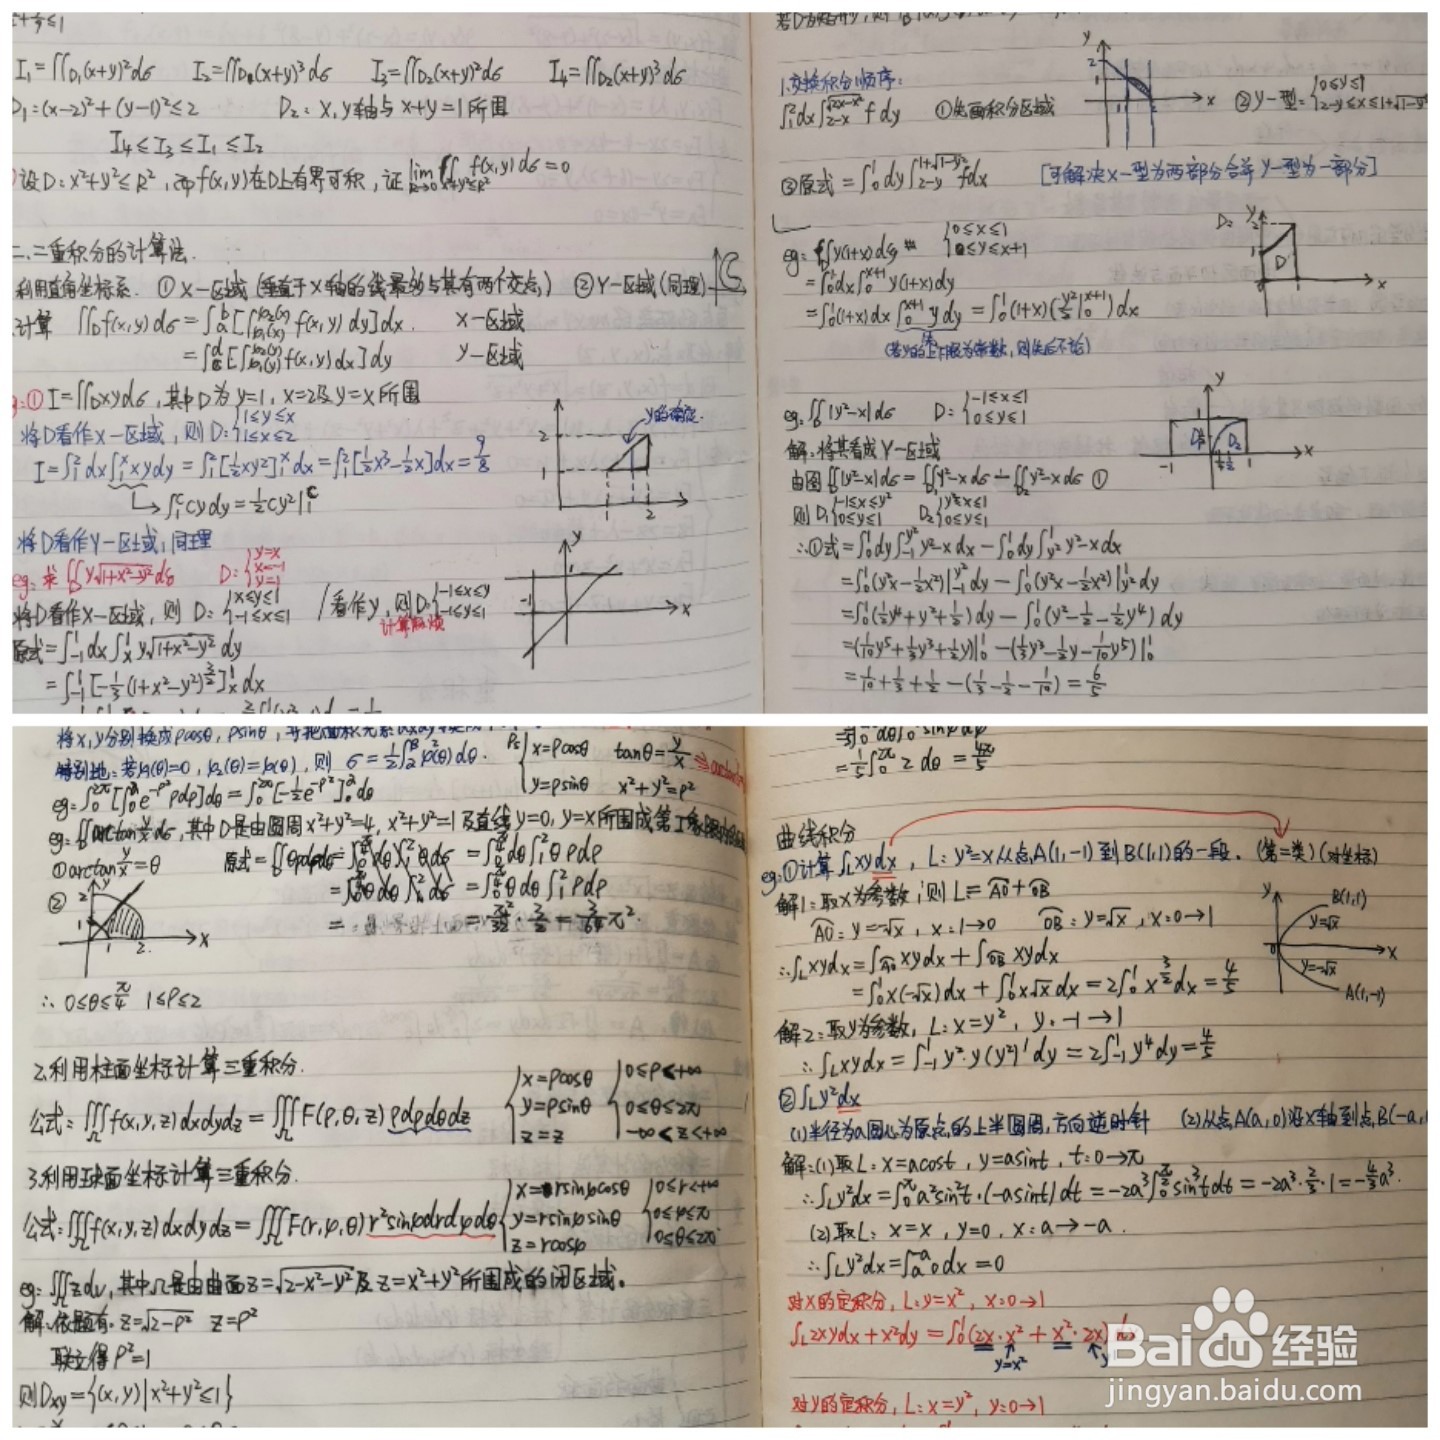 I₁=∬D₁(x+y)²dσ I₂=∬D₁(x+y)³dσ I₃=∬D₂(x+y)²dσ I₄=∬D₂(x+y)³dσ
D₁=(x-2)²+(y-1)²≤2 D₂: x,y轴与x+y=1所围
I₄≤I₃≤I₁≤I₂
设D:x²+y²≤R²,而f(x,y)在D上有界可积,证
f(x,y)dσ=0
二.二重积分的计算法.
利用直角坐标系. ①X-区域(垂直于X轴的线最多与其有两个交点) ②Y-区域(同理)
计算 ∬Df(x,y)dσ=∫
f(x,y)dy]dx. X-区域
f(x,y)dx]dy Y-区域
①I=∬Dxydσ,其中D为y=1,x=2及y=x所围
将D看作X-区域,则D:{1≤y≤x
1≤x≤2
I=∫₁²dx∫₁ˣxydy=∫₁²[½xy²]₁ˣdx=∫₁²[½x³-½x]dx=9/8
↳∫₁ᶜcydy=½cy²|₁ᶜ
2
1
1 2
将D看作Y-区域,同理
eg:求∬D y√(1+x²-y²)dσ D:{y=x
x=-1
y=1
将D看作X-区域,则D:{x≤y≤1
-1≤x≤1
/看作y,则D:{-1≤x≤y
-1≤y≤1
计算麻烦
y
1
-1
x
原式=∫₋₁¹dx∫ₓ¹y√(1+x²-y²)dy
=∫₋₁¹[-⅓(1+x²-y²)^(3/2)]ₓ¹dx
1.交换积分顺序:
∫₁²dx∫₂₋ₓ^√(2x-x²) f dy ①先画积分区域
②Y-型={0≤y≤1
2-y≤x≤1+√(1-y²)
y
2
1
1
x
③原式=∫₀¹dy∫₂₋y^(1+√(1-y²)) fdx [可解决X-型为两部分合并Y-型为一部分]
eg: ∬D y(1+x)dσ {0≤x≤1
0≤y≤x+1
=∫₀¹dx∫₀ˣ⁺¹y(1+x)dy
=∫₀¹(1+x)dx∫₀ˣ⁺¹ydy=∫₀¹(1+x)(y²/2|₀ˣ⁺¹)dx
D:
y
D
x
eg:∬D|y²-x|dσ D:{-1≤x≤1
0≤y≤1
解:将其看成Y-区域
由图∬D|y²-x|dσ=∬D₁y²-xdσ-∬D₂y²-xdσ ①
则D₁{-1≤x≤y²
0≤y≤1
D₂{y²≤x≤1
0≤y≤1
y
1
D₂
-1
1
x
∴①式=∫₀¹dy∫₋₁^y² y²-xdx-∫₀¹dy∫y²¹ y²-xdx
=∫₀¹(y²x-½x²)|₋₁^y² dy-∫₀¹(y²x-½x²)|y²¹dy
=∫₀¹(½y⁴+y²+½)dy-∫₀¹(y²-½-½y⁴)dy
=(1/10y⁵+⅓y³+½y)|₀¹-(⅓y³-½y-1/10y⁵)|₀¹
=1/10+⅓+½-(⅓-½-1/10)=6/5
将x,y分别换成ρcosθ,ρsinθ,
特别地:若φ₁(θ)=0,φ₂(θ)=φ(θ),则
dθ.
Ps{x=ρcosθ tanθ=y/x
y=ρsinθ x²+y²=ρ²
eg:∫₀^2π[∫₀ᵃe^(-ρ²)ρdρ]dθ=∫₀^2π[-½e^(-ρ²)]₀ᵃdθ
eg:∬D arctan y/x dσ,其中D是由圆周x²+y²=4,x²+y²=1及直线y=0,y=x所围成第I象限
①arctan y/x=θ
②
y
2
1
1 2
x
=∫₀^(π/4)dθ∫₁²θρdρ
=∫₀^(π/4)θdθ∫₁²ρdρ
=π²/32·3/2=3/64π².
∴ 0≤θ≤π/4 1≤ρ≤2
2.利用柱面坐标计算三重积分.
公式:∭Ωf(x,y,z)dxdydz=∭ΩF(ρ,θ,z)ρdρdθdz
{x=ρcosθ
y=ρsinθ
z=z
{0≤ρ<+∞
0≤θ≤2π
-∞<z<+∞
3.利用球面坐标计算三重积分.
公式:∭Ωf(x,y,z)dxdydz=∭ΩF(r,φ,θ)r²sinφdrdφdθ
{x=rsinφcosθ
y=rsinφsinθ
z=rcosφ
{0≤r<+∞
0≤φ≤π
0≤θ≤2π
eg:∭Ωzdv,其中Ω是由曲面z=√(2-x²-y²)及z=x²+y²所围成的闭区域。
解:依题有.z=√(2-ρ²) z=ρ²
联立得ρ²=1
则Dxy={(x,y)|x²+y²≤1}
=1/5∫₀^2π 2dθ=4π/5
曲线积分
eg:①计算∫Lxydx,L:y²=x从点A(1,-1)到B(1,1)的一段.(第二类)(对坐标)
解1:取x为参数,则L=AO+OB
AO:y=-√x,x:1→0 OB:y=√x,x:0→1
∴∫Lxydx=∫AOxydx+∫OBxydx
=∫₁⁰x(-√x)dx+∫₀¹x√xdx=2∫₀¹x^(3/2)dx=4/5
y
B(1,1)
y=√x
0
x
y=-√x
A(1,-1)
解2:取y为参数,L:x=y²,y:-1→1
∴∫Lxydx=∫₋₁¹y²·y(y²)'dy=2∫₋₁¹y⁴dy=4/5
②∫Ly²dx
(1)半径为a圆心为原点的上半圆周,方向逆时针 (2)从点A(a,0)沿x轴到点B(-a,
解:(1)取L:x=acost,y=asint,t:0→π
∴∫Ly²dx=∫₀^πa²sin²t·(-asint)dt=-2a³∫₀^(π/2)sin³tdt=-2a³·2/3·1=-4/3a³.
(2)取L:x=x,y=0,x:a→-a.
∴∫Ly²dx=∫ₐ⁻ᵃ0dx=0
对x的定积分,L:y=x²,x:0→1
∫L2xydx+x²dy=∫₀¹(2x·x²+x²·2x)dx
y=x²
对y的定积分,L:x=y²,y:0→1
Baidu经验
jingyan.baidu.com